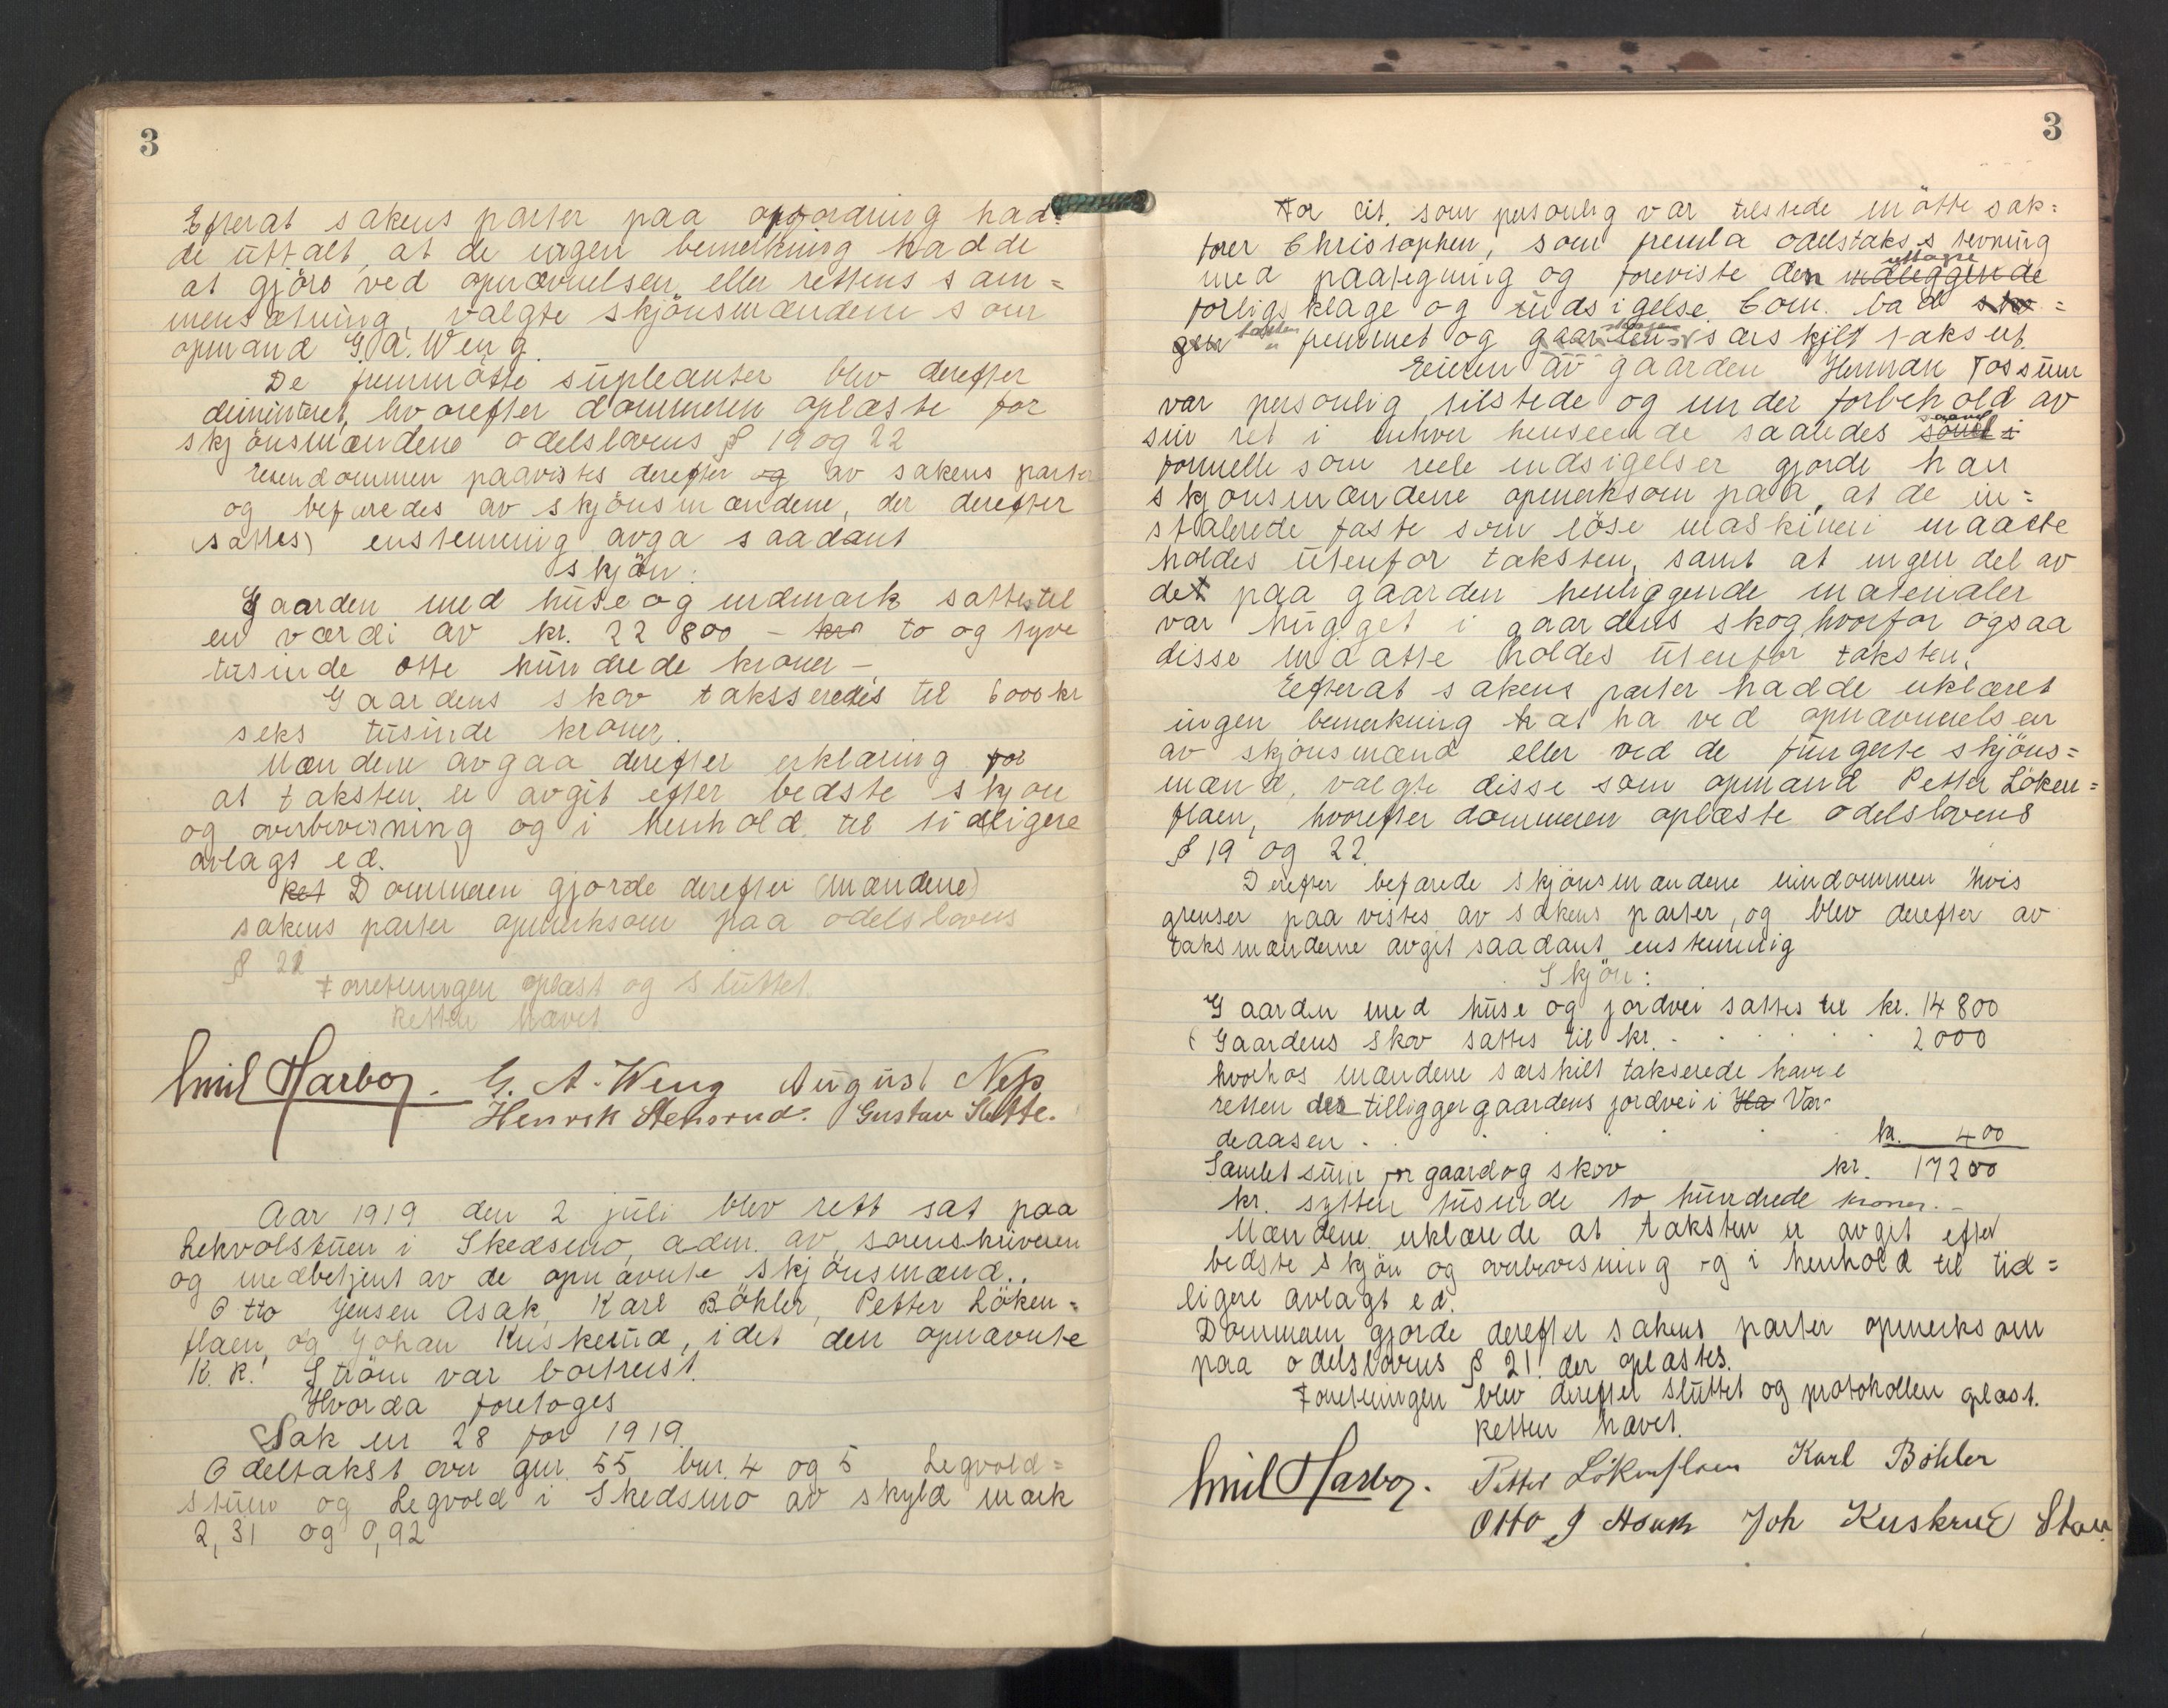 3
Efterat sakens parter paa opfordring had-
de uttalt, at de ingen bemerkning hadde
at gjöre ved opnævnelsen eller rettens sam=
mensætning, valgte skjönsmændene som
opmand G. A. Weng.
De fremmötte supleanter blev derefter
demitteret, hvorefter dommeren oplæste for
skjönsmændene odelslovens § 19 og 22
Eiendommen paavistes derefter og av sakens parter
og befaredes av skjönsmændene, der derefter
(sattes) enstemmig avga saadant
skjön:
Gaarden med huse og indmark sattes til
en værdi av kr. 22 800 - kr to og tyve
tusinde otte hundrede kroner -
Gaardens skov taksseredes til 6000 kr
seks tusinde kroner.
Mændene avgaa derefter erklæring for
at taksten er avgit efter bedste skjön
og overbevisning og i henhold til tidligere
avlagt ed.
Ret Dommeren gjorde derefter (mændene)
sakens parter opmerksom paa odelslovens
§ 21
Forretningen oplæst og sluttet.
Retten hævet
Emil Harboy. G. A. Weng August Næss
Henrik Stensrud. Gustav Slette.
Aar 1919 den 2 juli blev rett sat paa
Lekvolstuen i Skedsmo, adm. av sorenskriveren
og medbetjent av de opnævnte skjönsmænd..
Otto Jensen Asak, Karl Böhler, Petter Löken=
flaen, og Johan Kuskerud, idet den opnævnte
K. K. Ström var bortreist.
Hvorda foretoges
Sak nr 28 for 1919.
Odeltakst over gnr. 55 bnr. 4 og 5 Legvold=
stuen og Legvold i Skedsmo av skyld mark
2,31 og 0,92
3
For cit. som personlig var tilstede mötte sak=
förer Christophen, som fremla odelstaksts tevning
med paategning og foreviste den uttagne indleggende
forligsklage og indsigelse. Com. bad sko=
gen taksten fremmet og gaarden skogen særskilt taksert.
Eieren av gaarden Herman Fossum
var personlig tilstede og under forbehold av
sin ret i enhver henseende saaledes saavel i
formelle som reele indsigelser gjorde han
skjönsmændene opmerksom paa, at de in=
stalerede faste som löse maskineri maatte
holdes utenfor taksten, samt at ingen del av
det paa gaarden henliggende materialer
var hugget i gaardens skog hvorfor ogsaa
disse maatte holdes utenfor taksten.
Eefterat sakens parter hadde erklæret
ingen bemerkning at ha ved opnævnelsen
av skjönsmænd eller ved de fungerte skjöns=
mænd, valgte disse som opmand Petter Löken=
flaen, hvorefter dommeren oplæste odelslovens
§ 19 og 22.
Derefter befarede skjönsmændene eindommen hvis
grenser paa vistes av sakens parter, og blev derefter av
taksmænderne avgit saadant enstemmig
Skjön:
Gaarden med huse og jordvei sattes til kr. 14 800
( Gaardens skov sattes til kr. . . . . . 2000
hvorhos mændene særskilt takserede havne
retten der tilligger gaardens jordvei i Ha Var-
deaasen . . . . . kr. 400
Samlet sum for gaard og skov kr. 17200
kr. sytten tusinde to hundrede kroner. -
Mændene erklærede at taksten er avgit efter
bedste skjön og overbevisning og i henhold til tid=
ligere avlagt ed.
Dommeren gjorde derefter sakens parter opmerksom
paa odelslovens § 21. der oplæstes.
Forretningen blev derefter sluttet og protokollen oplæst.
Retten hævet.
Emil Harboy. Petter Lökenflaen Karl Böhler
Otto J Asak Joh Kuskrud